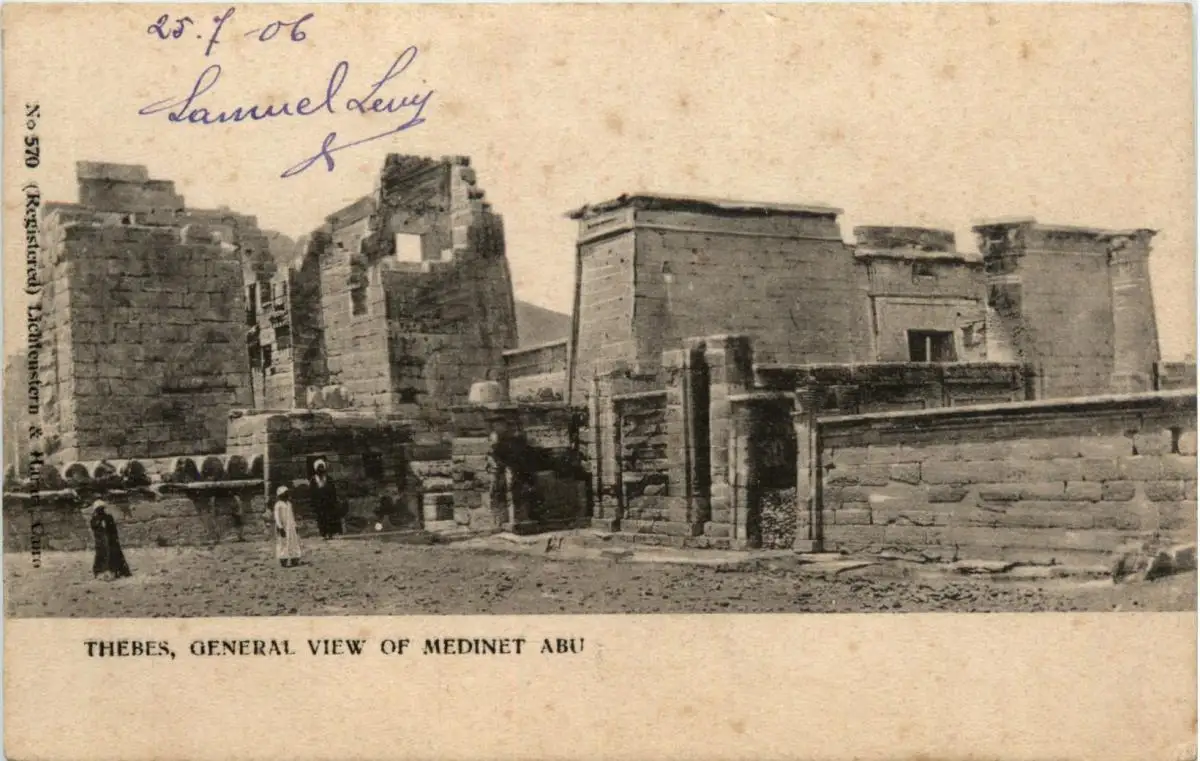 25.7-06
Samuel Levy
No 570 (Registered) Lichtenstern & Harari, Cairo
THEBES, GENERAL VIEW OF MEDINET ABU